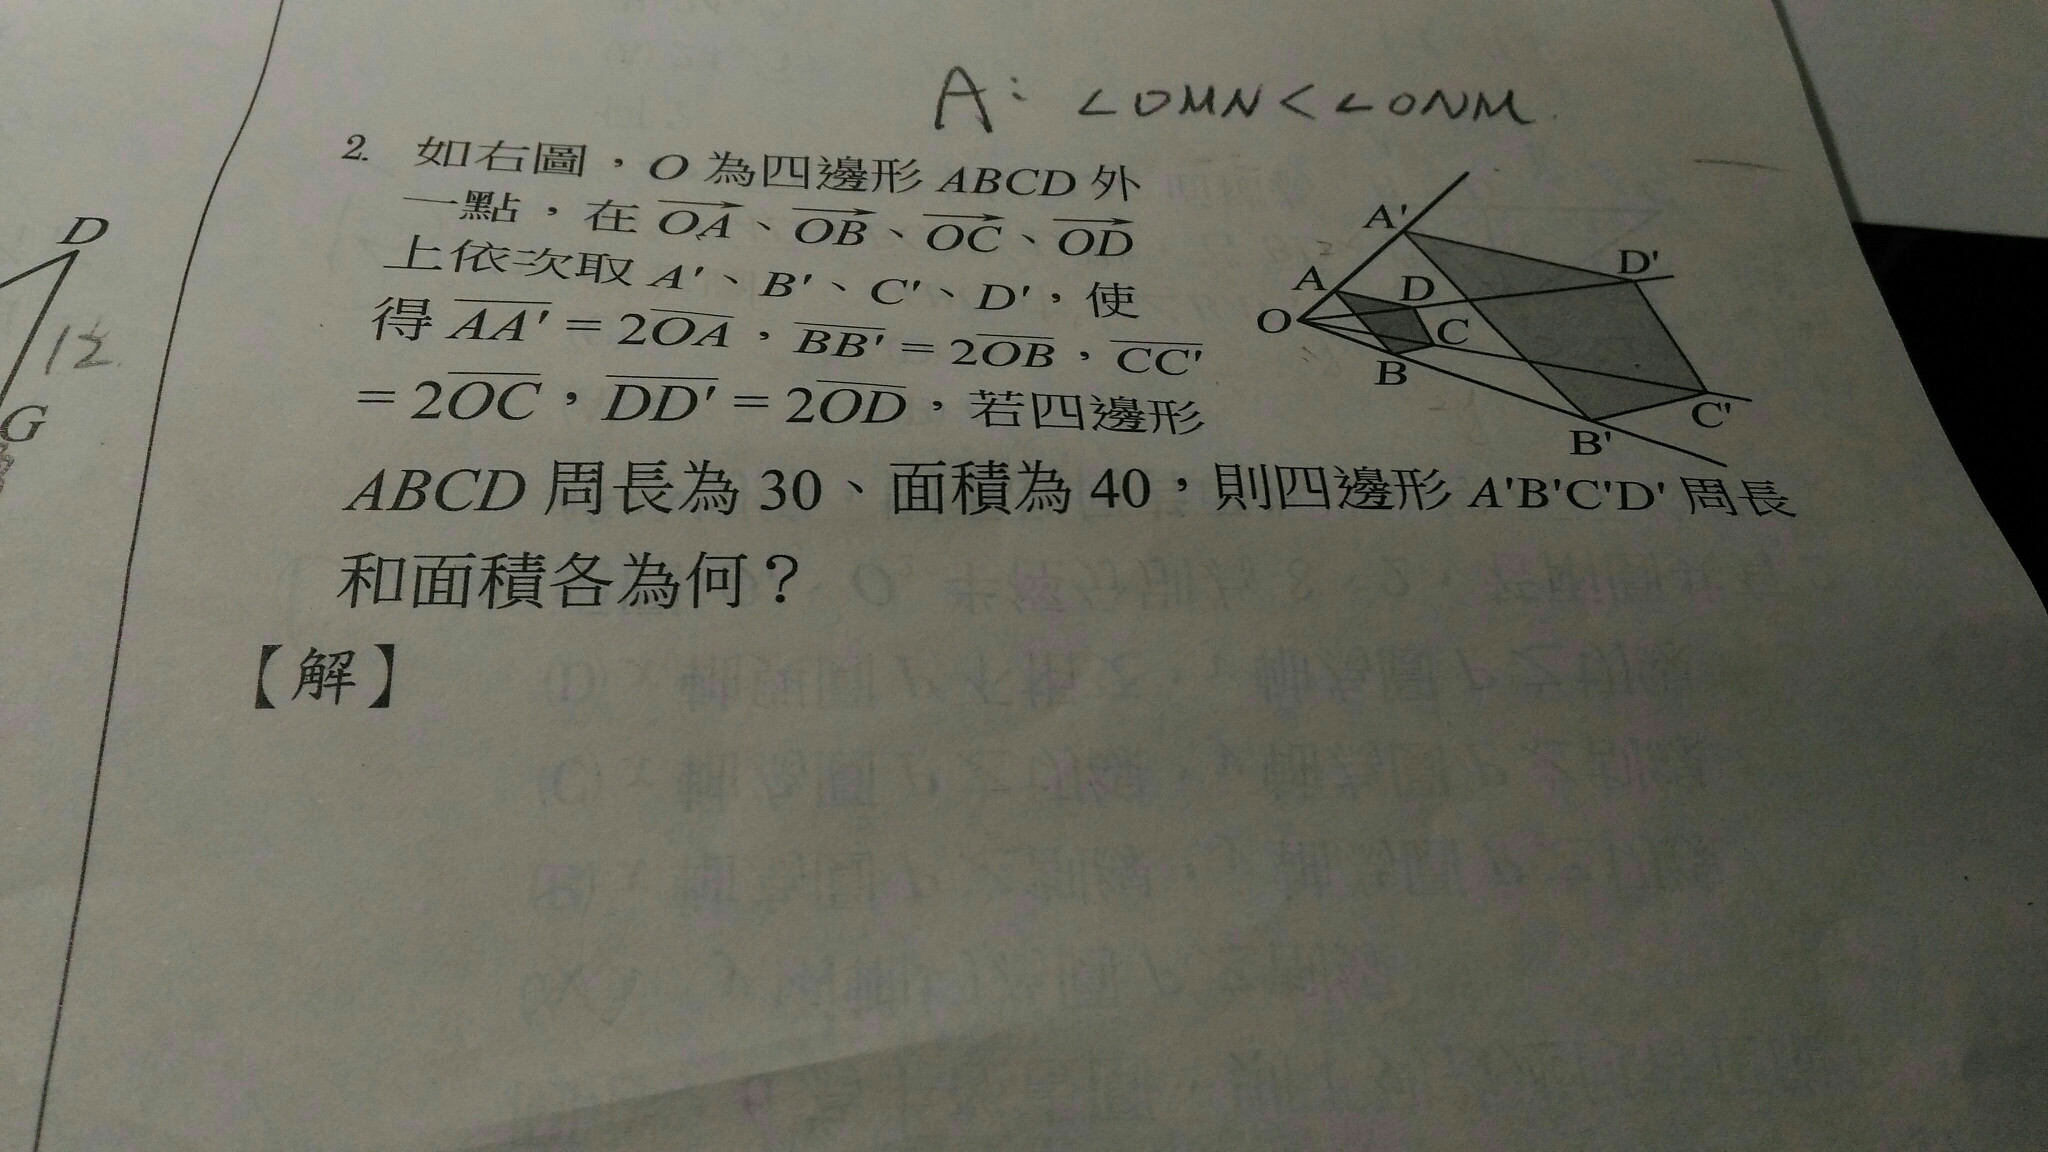 A: ∠OMN < ∠ONM
2. 如右圖，O 為四邊形 ABCD 外
一點，在 OA、OB、OC、OD
上依次取 A'、B'、C'、D'，使
得 AA' = 2OA，BB' = 2OB，CC'
= 2OC，DD' = 2OD，若四邊形
ABCD 周長為 30、面積為 40，則四邊形 A'B'C'D' 周長
和面積各為何？
【解】
A'
D'
A
D
O
C
B
C'
B'
D
G